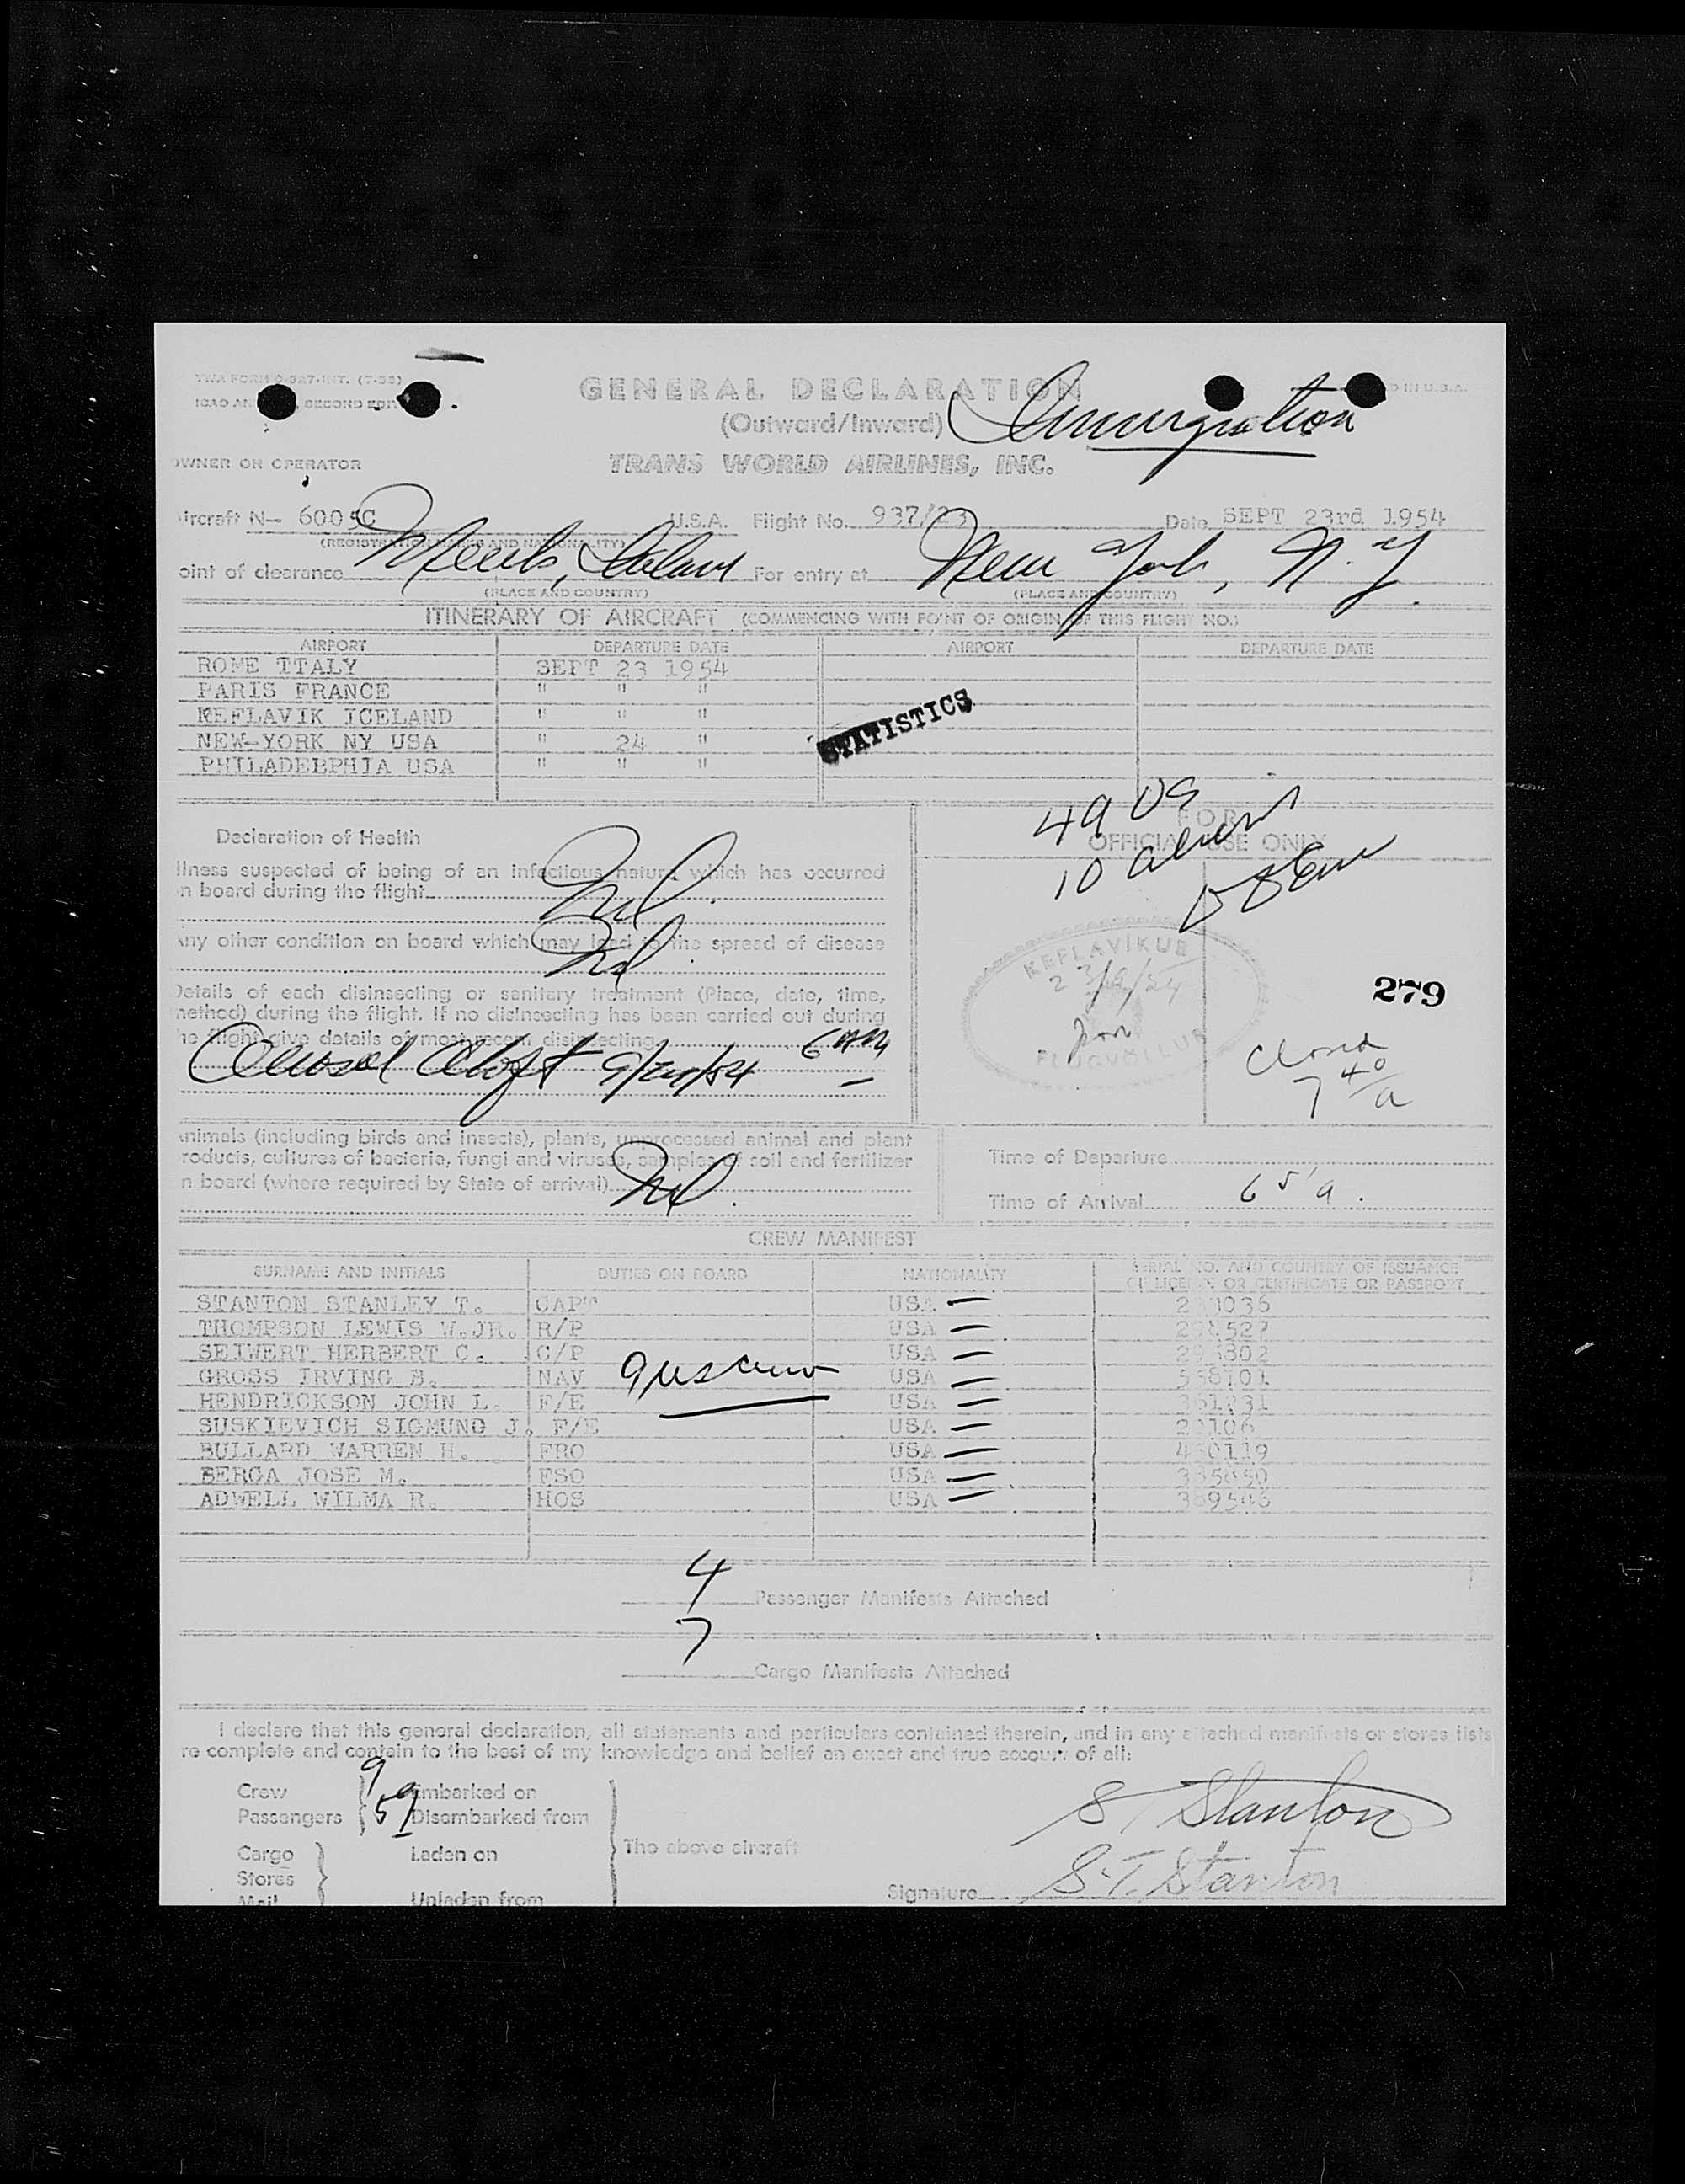 TWA FORM
ICAO SECOND
GENERAL DECLARATION
(Outward/Inward)
Immigration
OWNER OR OPERATOR
TRANS WORLD AIRLINES, INC.
ircraft N— 6005C U.S.A. Flight No. 937/23 Date SEPT 23rd 1954
(REGISTRATION MARKS AND NATIONALITY)
oint of clearance Meeks, For entry at New York, N.Y.
(PLACE AND COUNTRY) (PLACE AND COUNTRY)
ITINERARY OF AIRCRAFT (COMMENCING WITH POINT OF ORIGIN OF THIS FLIGHT NO.)
AIRPORT DEPARTURE DATE AIRPORT DEPARTURE DATE
ROME ITALY SEPT 23 1954
PARIS FRANCE " " "
KEFLAVIK ICELAND " " "
NEW-YORK NY USA " 24 "
PHILADEBPHIA USA " " "
STATISTICS
49 US
10 aliens
FOR
OFFICIAL USE ONLY
Declaration of Health
llness suspected of being of an infectious nature which has occurred
n board during the flight Nil.
ny other condition on board which may lead to the spread of disease
Nil.
Details of each disinsecting or sanitary treatment (Place, date, time,
method) during the flight. If no disinsecting has been carried out during
he flight give details of most recent disinsecting
Aerosol Aloft 6 AM
KEFLAVIKUR
FLUGVÖLLUR
279
Closed
7 40/a
nimals (including birds and insects), plants, unprocessed animal and plant
roducts, cultures of bacteria, fungi and viruses, samples of soil and fertilizer
n board (where required by State of arrival) Nil.
Time of Departure
Time of Arrival
CREW MANIFEST
SURNAME AND INITIALS DUTIES ON BOARD NATIONALITY SERIAL NO. AND COUNTRY OF ISSUANCE
OF LICENSE OR CERTIFICATE OR PASSPORT
STANTON STANLEY T. CAPT USA
THOMPSON LEWIS W.JR. R/P USA
SEIWERT HERBERT C. C/P USA
GROSS IRVING B. NAV USA
HENDRICKSON JOHN L. F/E USA
SUSKIEVICH SIGMUND J. F/E USA
BULLARD WARREN H. FRO USA
BERGA JOSE M. FSO USA
ADWELL WILMA R. HOS USA
4 Passenger Manifests Attached
7 Cargo Manifests Attached
I declare that this general declaration, all statements and particulars contained therein, and in any attached manifests or stores lists
re complete and contain to the best of my knowledge and belief an exact and true account of all:
Crew 9 Embarked on
Passengers 59 Disembarked from
Cargo Laden on The above aircraft
Stores
Mail Unladen from
S. Stanton
Signature S. T. Stanton